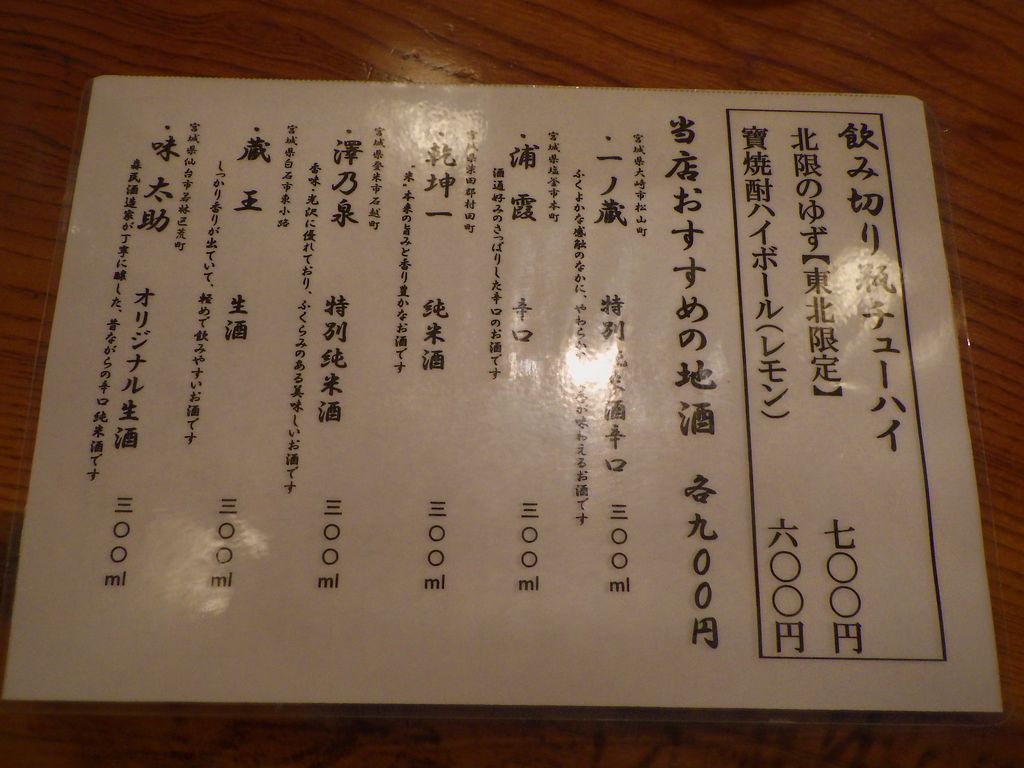 飲み切り瓶チューハイ
北限のゆず【東北限定】 七〇〇円
寶焼酎ハイボール(レモン) 六〇〇円
当店おすすめの地酒 各九００円
宮城県大崎市松山町
・一ノ蔵 特別純米酒辛口 三〇〇ml
ふくよかな感触のなかに、やわらか 味わえるお酒です
宮城県塩釜市本町
・浦霞 辛口 三〇〇ml
酒通好みのさっぱりした辛口のお酒です
宮城県柴田郡村田町
・乾坤一 純米酒 三〇〇ml
・米・本来の旨みと香り豊かなお酒です
宮城県登米市石越町
・澤乃泉 特別純米酒 三〇〇ml
香味・光沢に優れており、ふくらみのある美味しいお酒です
宮城県白石市東小路
・蔵王 生酒 三〇〇ml
しっかり香りが出ていて、軽めで飲みやすいお酒です
宮城県仙台市若林区荒町
・味太助 オリジナル生酒 三〇〇ml
森民酒造家が丁寧に醸した、昔ながらの辛口純米酒です